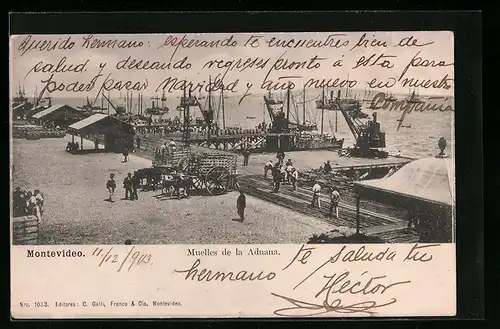 Querido hermano: esperando te encuentres bien de
salud y deseando regreses pronto á esta para
poder pasar Navidad y año nuevo en nuestra
Compañia
Montevideo. 11/12/903. Muelles de la Aduana.
te saluda tu
hermano Héctor
Nro. 1053. Editores: C. Galli, Franco & Cía, Montevideo.